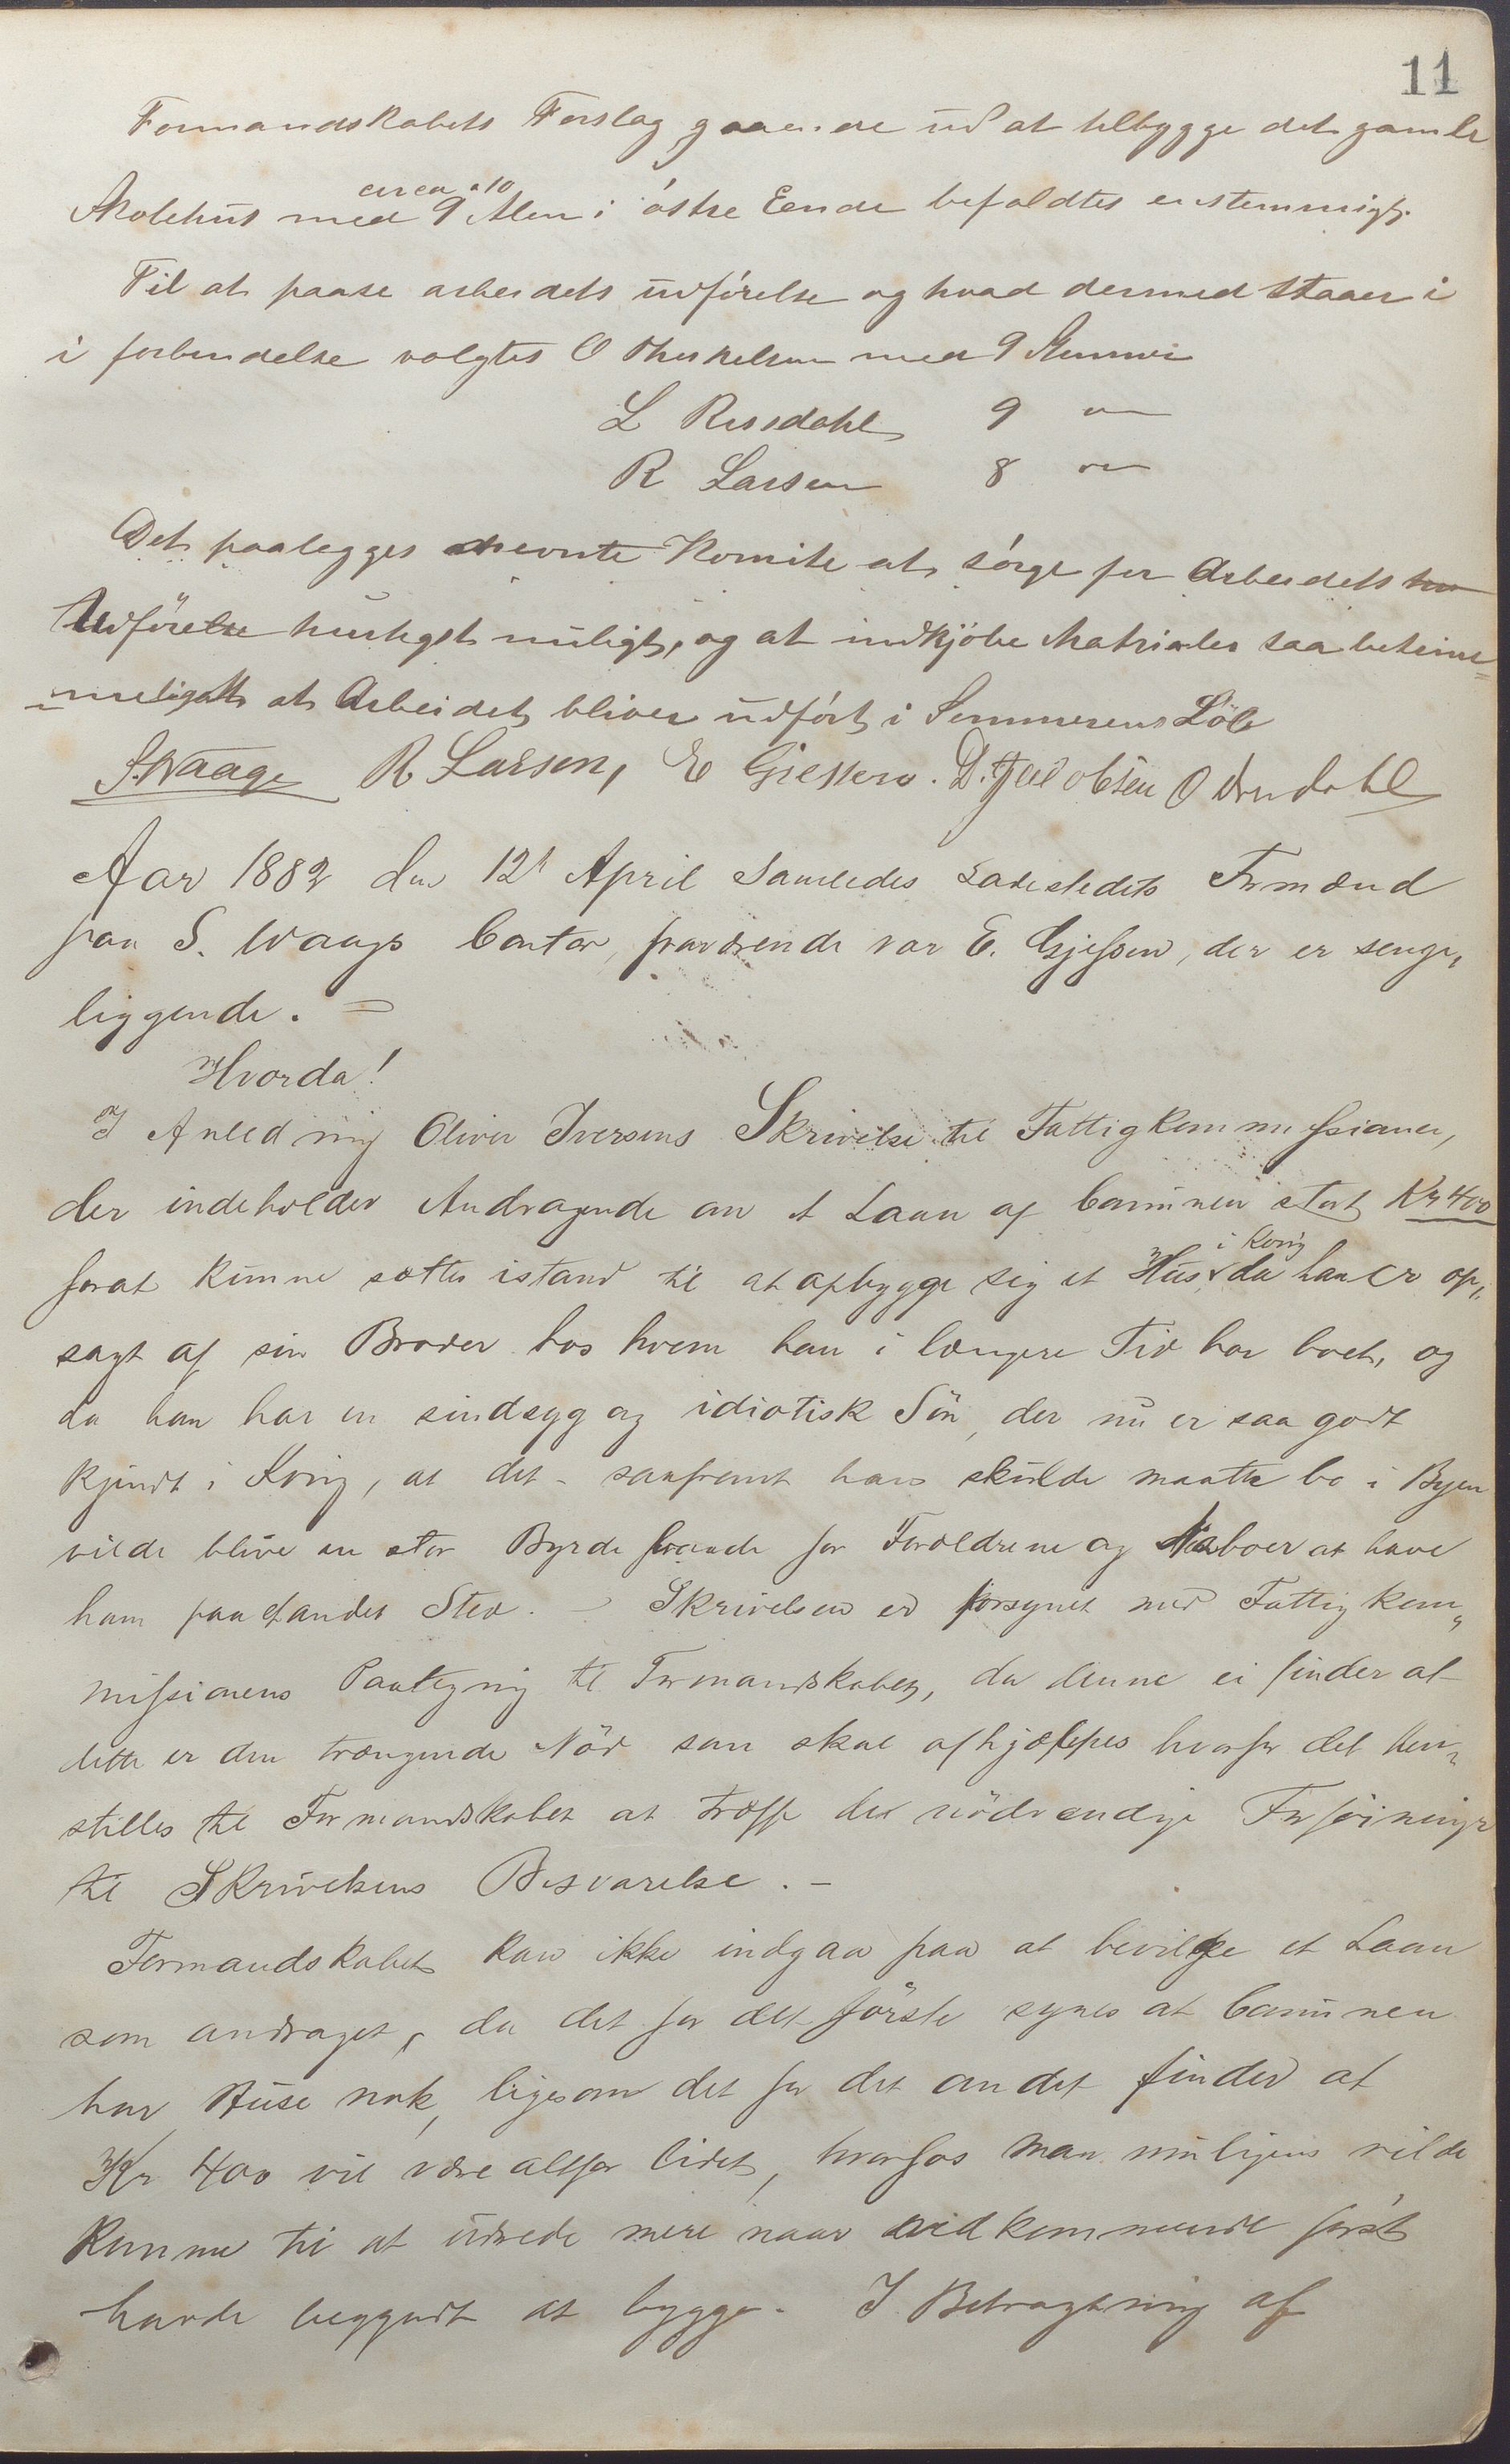 11
Formandskabets Forslag gaaende ud at tilbygge det gamle
Skolehus med circa 9 a 10 Alen i östre Eende befaldtes enstemmigt.
Til at paase arbeidets udförelse og hvad dermed staaer i
i forbindelse valgtes O Therkelsen med 9 Stemmer
L Rossdahl 9 "
R Larsen 8 "
Det paalegges nevnte Komite at sörge for Arbeidets
Udförelse hurtigst muligt, og at indkjöbe Matrialer saa betime
meligt at Arbeidet bliver udfört i Sommerens Löb
S. Waage R Larsen, E Giessen. D. Jacobsen O Omdahl
Aar 1882 den 12t April Samledes Ladestedets Formænd
paa S. Waages Contor, fraværende var E. Gjessen, der er senge,,
liggende. =
Hvorda!
I Anledning Oliver Iversens Skrivelse til Fattigkommissionen,
der indeholder Andragende om et Laan af Communen stort Kr 400
forat kunne sættes istand til at opbygge sig et Hus i Kong da han er op,,
sagt af sin Broder hos hvem han i længere Tid har boet, og
da han har en sindsyg og idiotisk Sön, der nu er saa godt
kjendt i Kong, at det - saafremt han skulde maatte bo i Byen
vilde blive en stor Byrde for Forældrene og Naboer at have
ham paa et andet Sted. Skrivelsen er forsynet med Fattigkom,,
missionens Paategning til Formandskabet, da denne ei finder at
dette er den trængende Nöd som skal afhjælpes hvorfor det hen,,
stilles til Formandskabet at træffe den nödvendige Forföininger
til Skrivelsens Besvarelse. -
Formandskabet kan ikke indgaa paa at bevilge et Laan
som andraget, da det for det förste synes at Communen
har Huse nok, ligesom det for det andet finder at
Kr 400 vil være altfor lidet, hvorfor man muligens vilde
komme til at udrede mere naar vedkommende först
havde begyndt at bygge. I Betragtning af